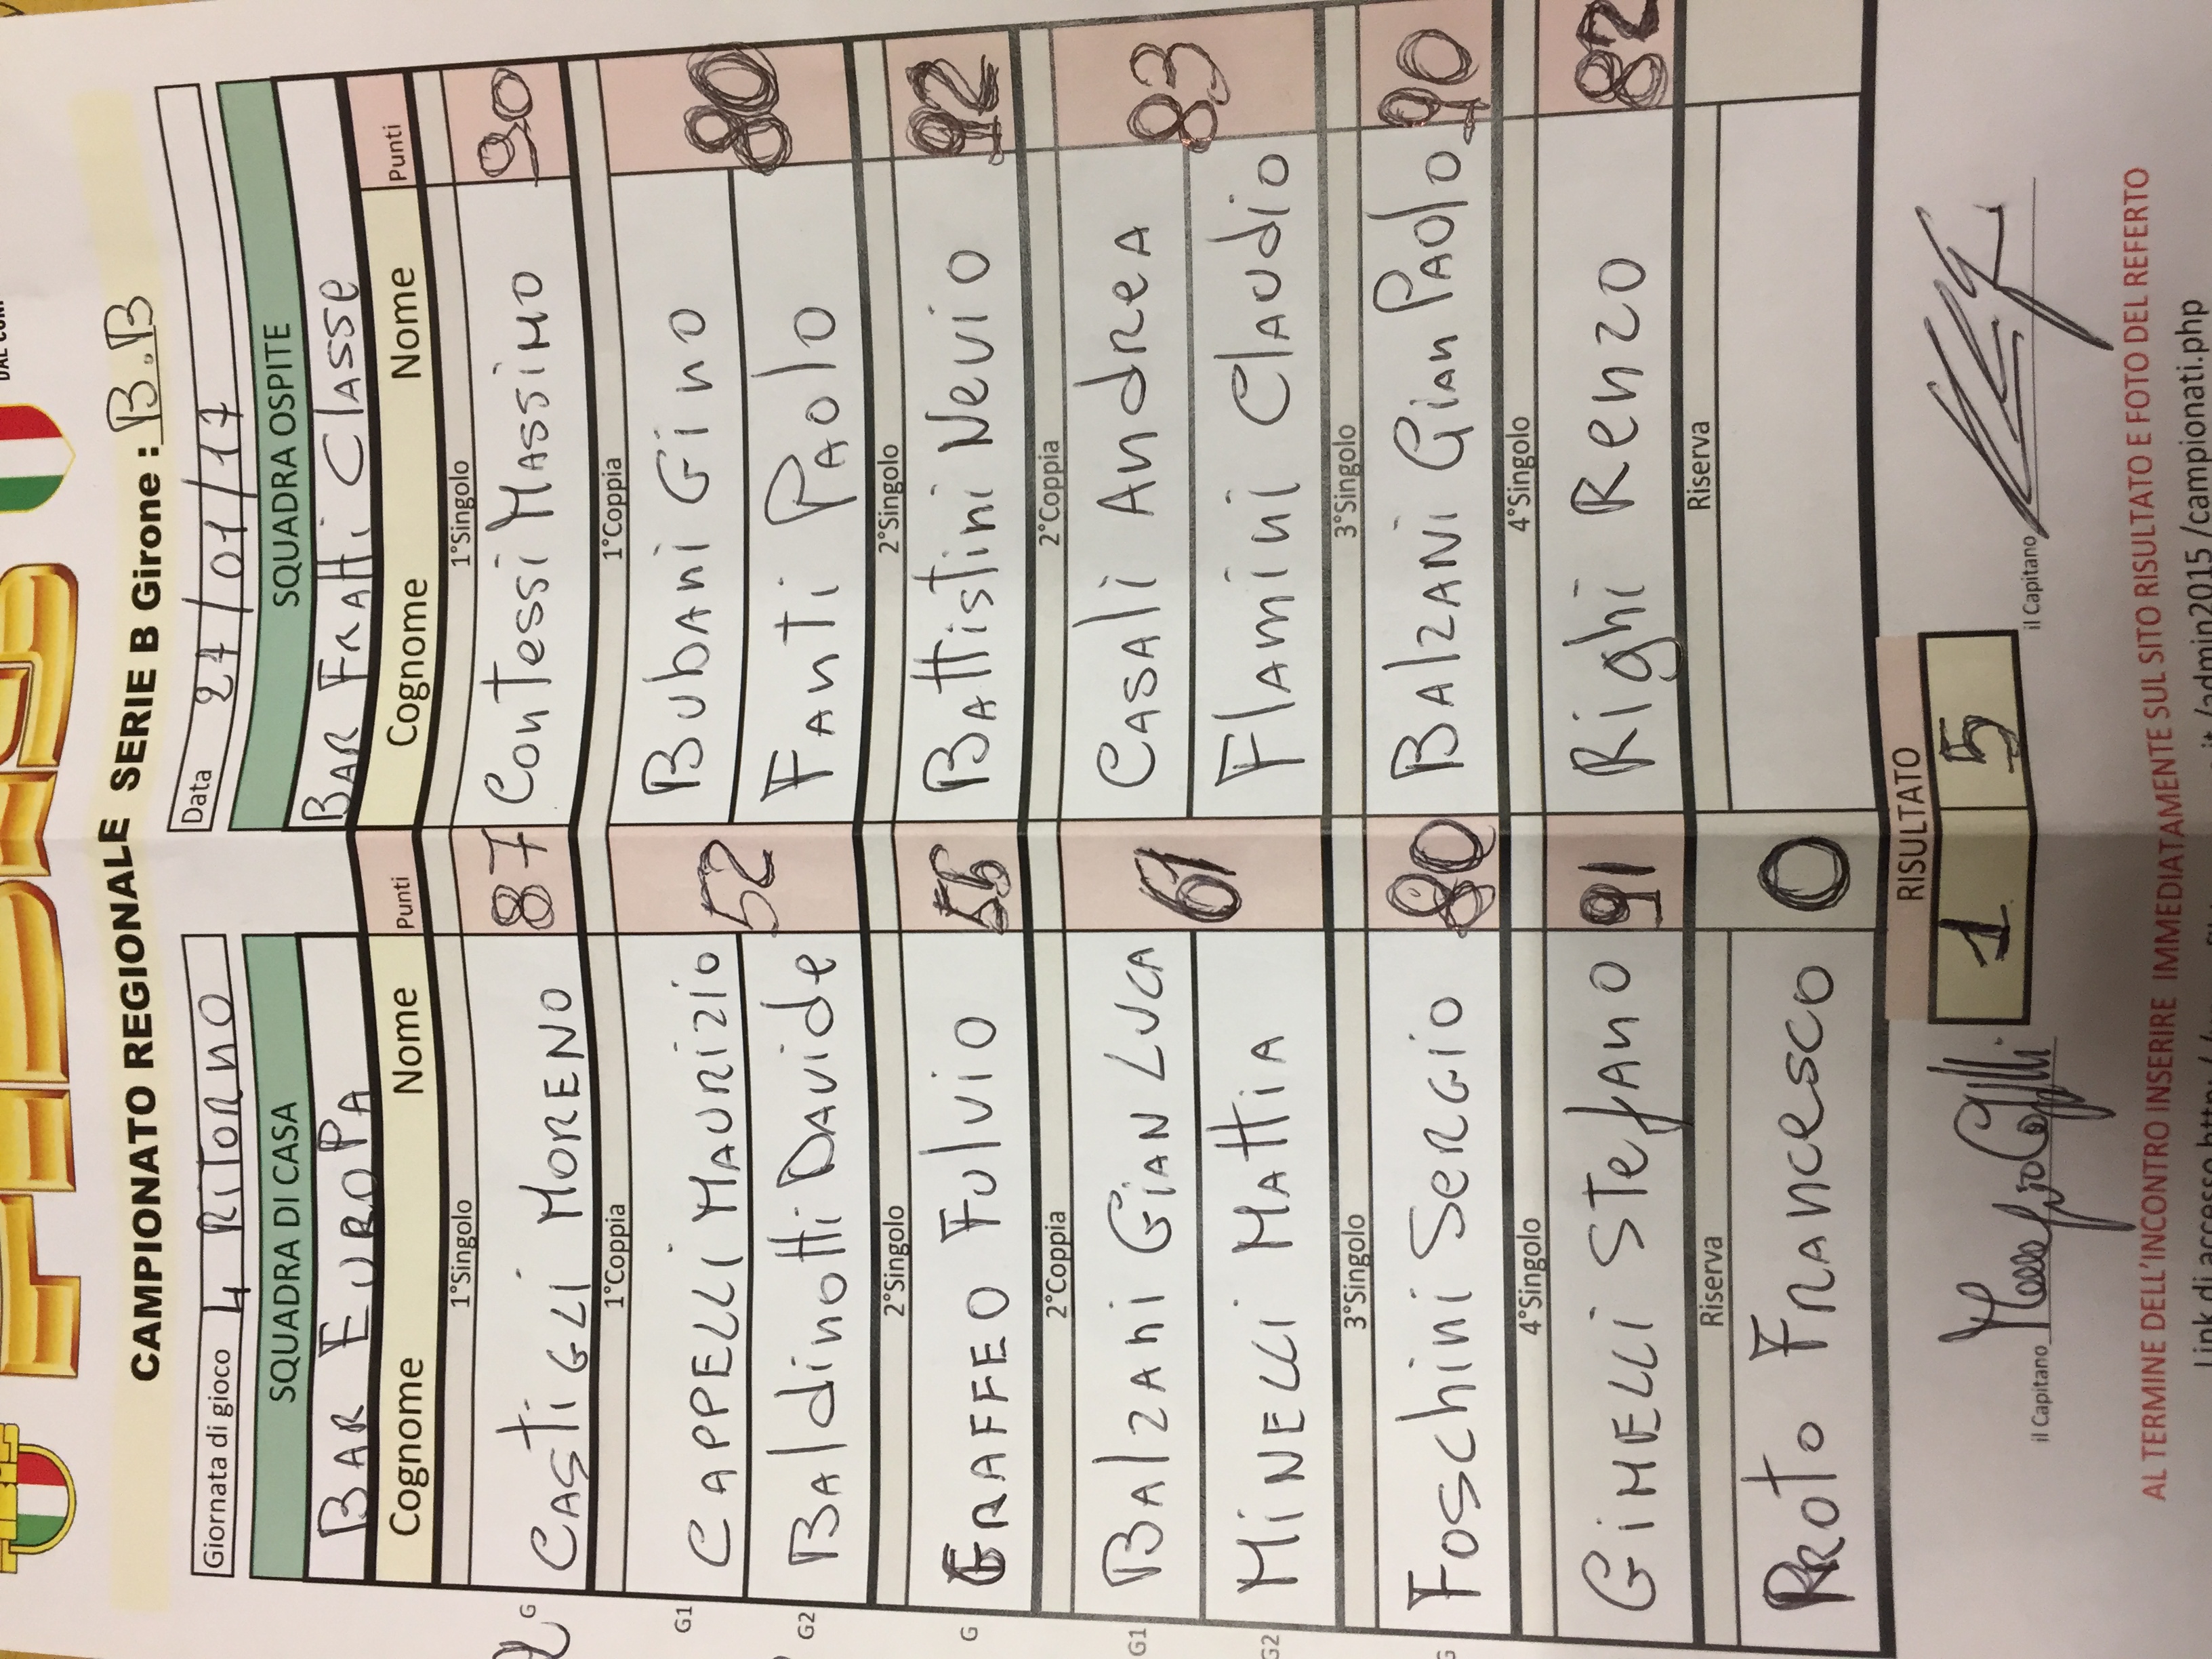 CAMPIONATO REGIONALE SERIE B Girone : B.B
Giornata di gioco 4 RiTORNO
Data 27/01/17
SQUADRA DI CASA SQUADRA OSPITE
BAR EUROPA BAR FRATTI CLASSE
Cognome Nome Punti Cognome Nome Punti
1°Singolo 1°Singolo
G CASTIGLI MORENO 87 CONTESSI MASSIMO 90
1°Coppia 1°Coppia
G1 CAPPELLI MAURIZIO 52 BUBANI GINO 80
G2 BALDINOTTI DAVIDE FANTI PAOLO
2°Singolo 2°Singolo
G GRAFFEO FULVIO 56 BATTISTINI NEVIO 92
2°Coppia 2°Coppia
G1 BALZANI GIAN LUCA 61 CASALI ANDREA 83
G2 MINELLI MATTIA FLAMINI CLAUDIO
3°Singolo 3°Singolo
G FOSCHINI SERGIO 80 BALZANI GIAN PAOLO 90
4°Singolo 4°Singolo
GIMELLI STEFANO 91 RIGHI RENZO 82
Riserva Riserva
PROTO FRANCESCO 0
RISULTATO
1 5
il Capitano il Capitano
AL TERMINE DELL'INCONTRO INSERIRE IMMEDIATAMENTE SUL SITO RISULTATO E FOTO DEL REFERTO
Link di accesso http:// it/admin2015/campionati.php